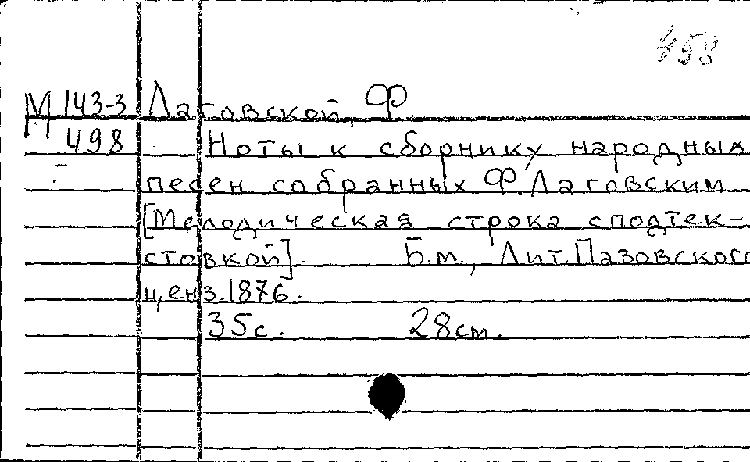 458
М 143-3 Лаговской, Ф
498 Ноты к сборнику народных
песен собранных Ф. Лаговским
[Мелодическая строка сподтек-
стовкой] Б.м., Лит. Пазовского
ценз. 1876.
35с. 28см.